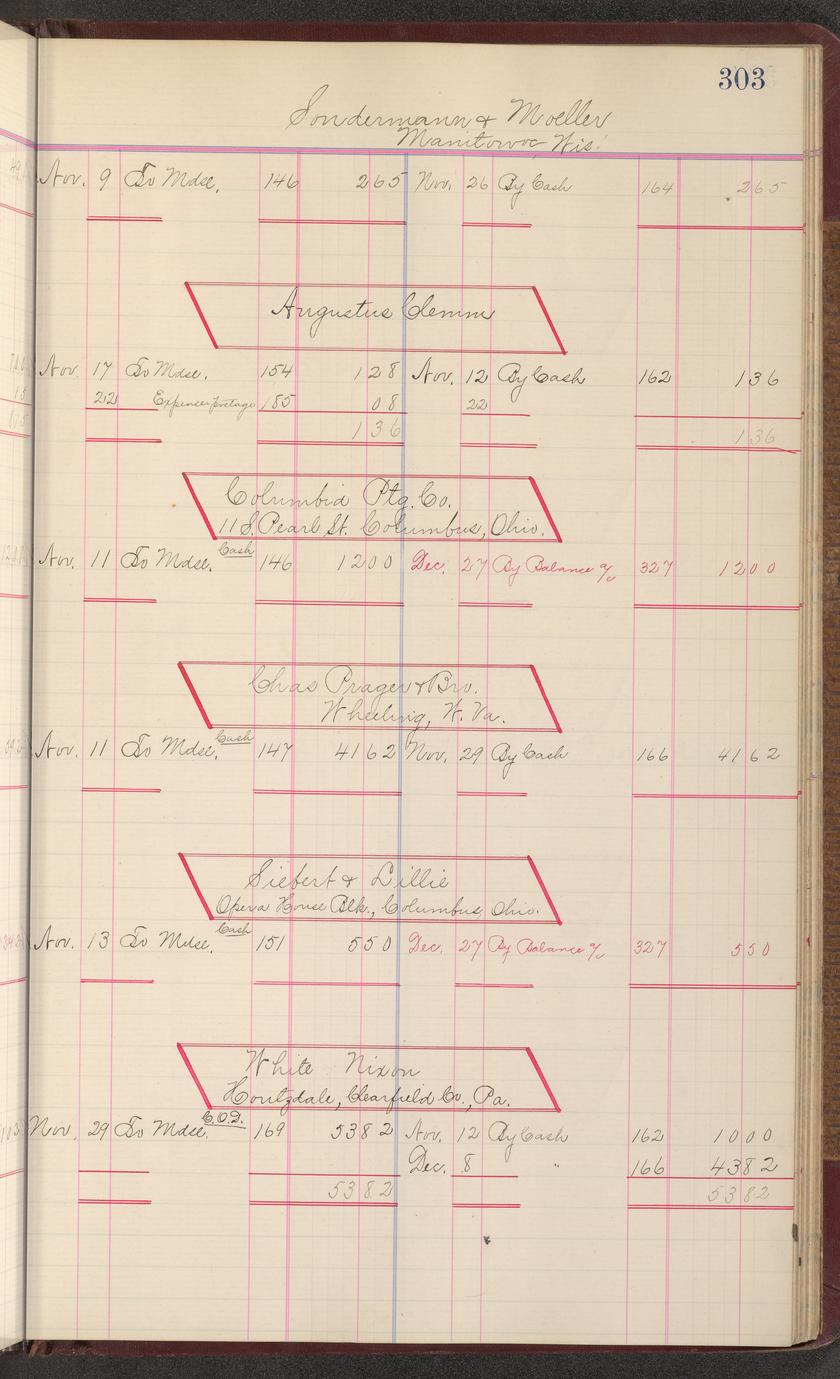 303
Sondermann & Moeller
Manitowoc Wis.
Nov. 9 To Mdse. 146 2 65 Nov. 26 By Cash 164 2 65
Augustus Clemm
Nov. 17 To Mdse. 154 1 28 Nov. 12 By Cash 162 1 36
22 Expense postage 185 08 22
1 36 1 36
Columbia Ptg. Co.
11 S. Pearl St. Columbus, Ohio.
Nov. 11 To Mdse. Cash 146 12 00 Dec. 27 By Balance a/c 327 12 00
Chas Prager & Bro.
Wheeling, W. Va.
Nov. 11 To Mdse. Cash 147 41 62 Nov. 29 By Cash 166 41 62
Siebert & Lillie
Opera House Blk., Columbus, Ohio.
Nov. 13 To Mdse. Cash 151 5 50 Dec. 27 By Balance a/c 327 5 50
White Nixon
Houtzdale, Clearfield Co., Pa.
Nov. 29 To Mdse. C.O.D. 169 53 82 Nov. 12 By Cash 162 10 00
Dec. 8 " 166 43 82
53 82 53 82